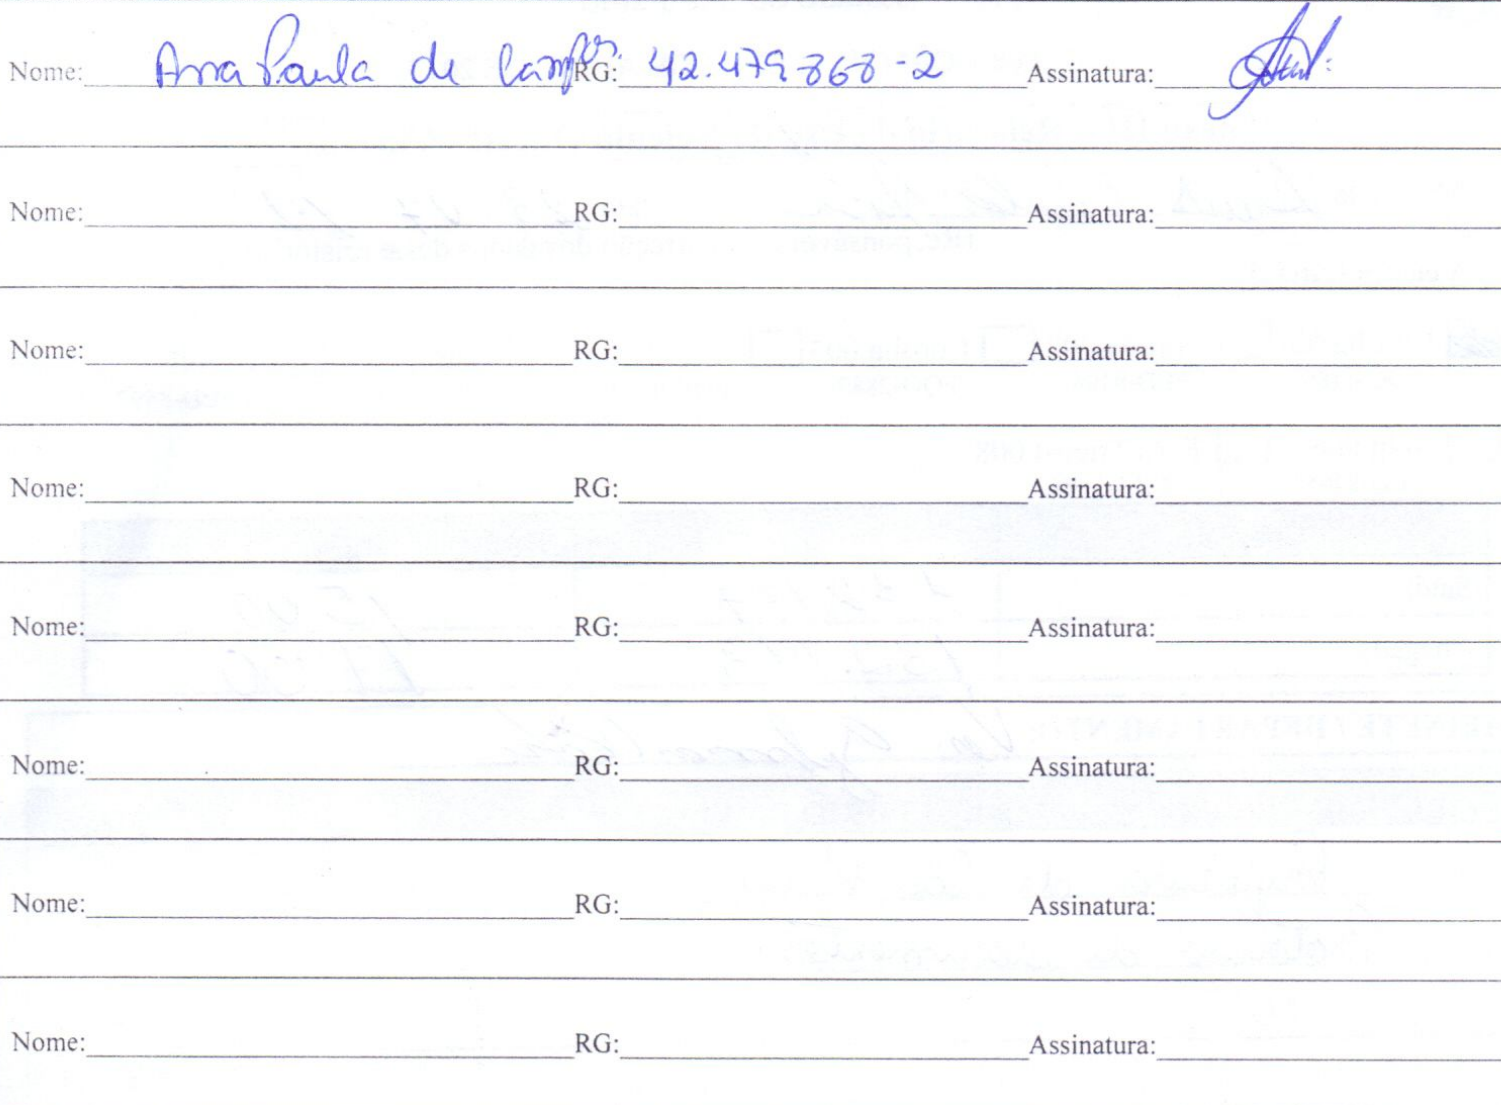 Nome: Ana Paula de Campos RG: 42.479.868-2 Assinatura:
Nome: RG: Assinatura:
Nome: RG: Assinatura:
Nome: RG: Assinatura:
Nome: RG: Assinatura:
Nome: RG: Assinatura:
Nome: RG: Assinatura:
Nome: RG: Assinatura: